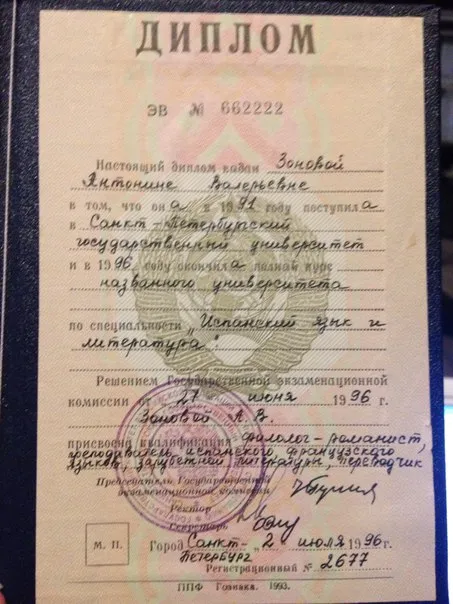 ДИПЛОМ
ЭВ № 662222
Настоящий диплом выдан Зоновой
Антонине Валерьевне
в том, что она в 1991 году поступила
в Санкт-Петербургский
государственный университет
и в 1996 году окончила полный курс
названного университета
по специальности „Испанский язык и
литература".
Решением Государственной экзаменационной
комиссии от 27 июня 1996 г.
Зоновой А. В.
присвоена квалификация филолог-романист,
преподаватель испанского, французского
языков, зарубежной литературы, переводчик
Председатель Государственной
экзаменационной комиссии
Ректор
Секретарь
М. П.
Город Санкт- „2" июля 1996 г.
Петербург
Регистрационный № 2677
ППФ Гознака. 1993.